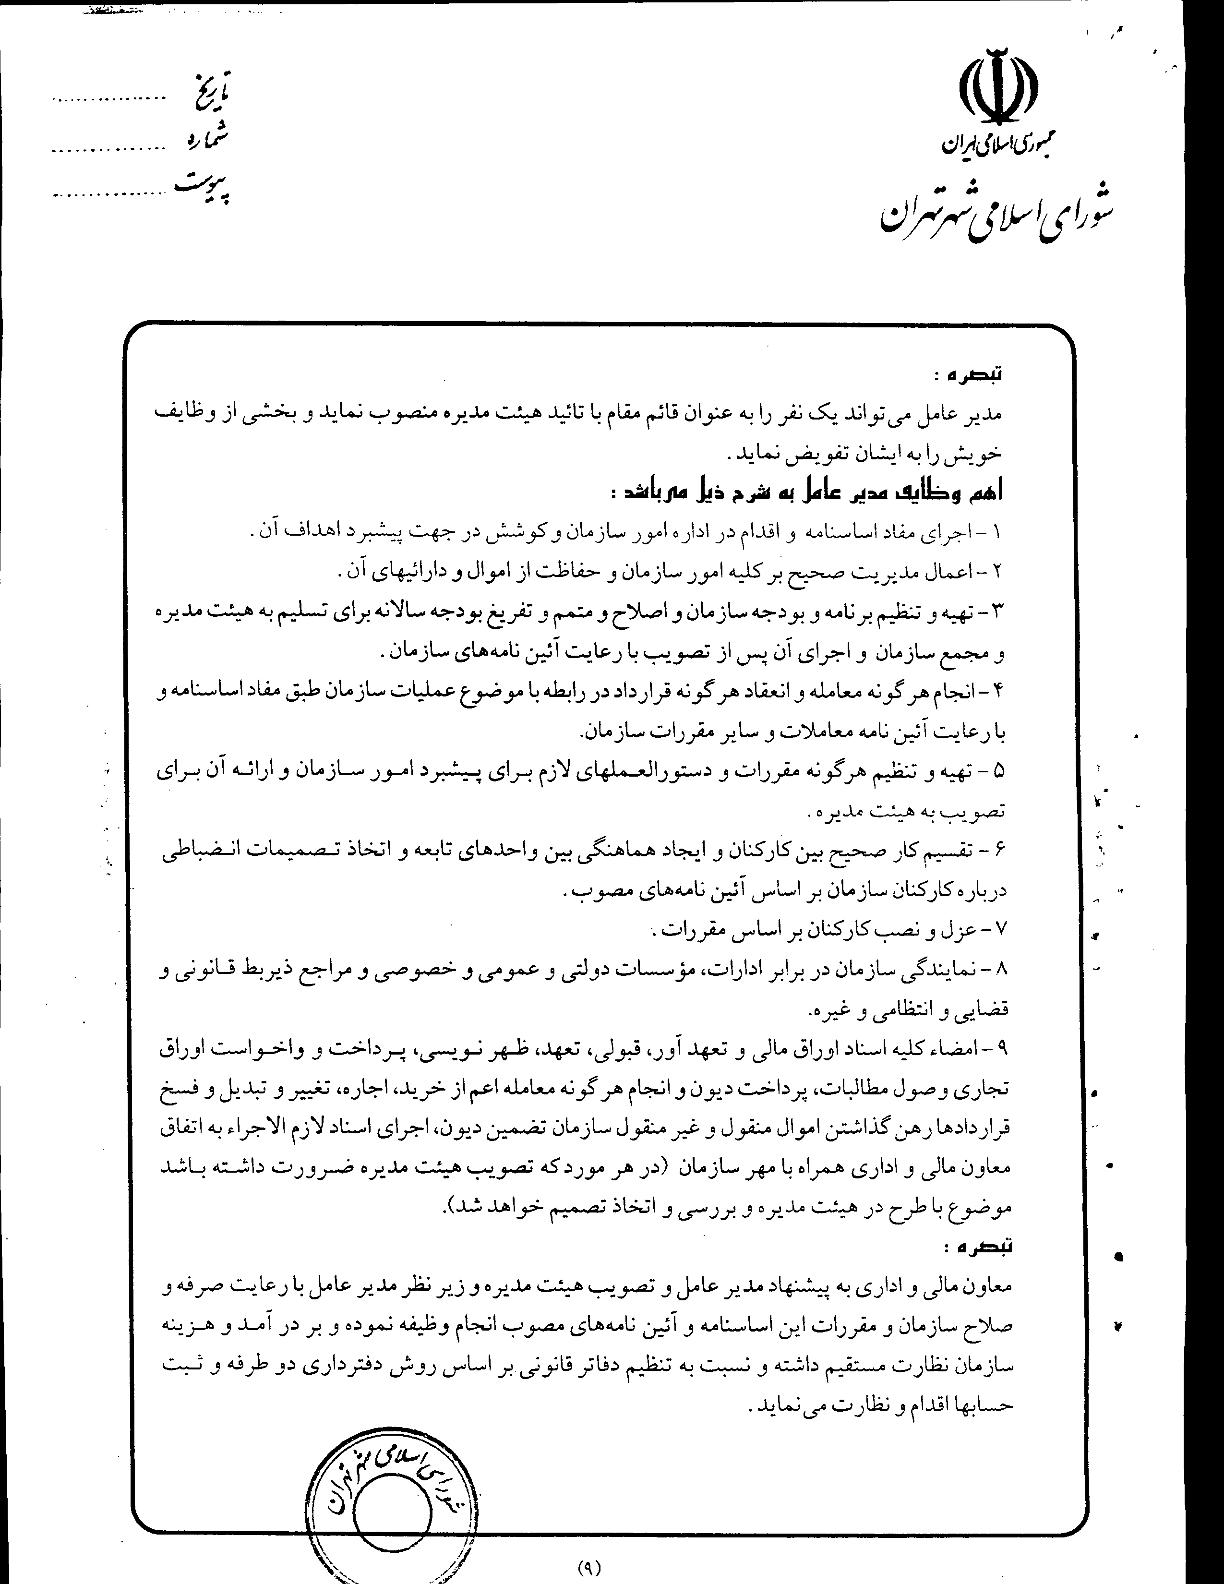 جمهوری اسلامی ایران
شورای اسلامی شهر تهران
تاریخ ................
شماره ................
پیوست ................
تبصره :
مدیر عامل می‌تواند یک نفر را به عنوان قائم مقام با تائید هیئت مدیره منصوب نماید و بخشی از وظایف
خویش را به ایشان تفویض نماید .
اهم وظایف مدیر عامل به شرح ذیل می‌باشد :
۱ - اجرای مفاد اساسنامه و اقدام در اداره امور سازمان و کوشش در جهت پیشبرد اهداف آن .
۲ - اعمال مدیریت صحیح بر کلیه امور سازمان و حفاظت از اموال و دارائیهای آن .
۳ - تهیه و تنظیم برنامه و بودجه سازمان و اصلاح و متمم و تفریغ بودجه سالانه برای تسلیم به هیئت مدیره
و مجمع سازمان و اجرای آن پس از تصویب با رعایت آئین نامه‌های سازمان .
۴ - انجام هر گونه معامله و انعقاد هر گونه قرارداد در رابطه با موضوع عملیات سازمان طبق مفاد اساسنامه و
با رعایت آئین نامه معاملات و سایر مقررات سازمان.
۵ - تهیه و تنظیم هرگونه مقررات و دستورالعملهای لازم برای پیشبرد امور سازمان و ارائه آن برای
تصویب به هیئت مدیره .
۶ - تقسیم کار صحیح بین کارکنان و ایجاد هماهنگی بین واحدهای تابعه و اتخاذ تصمیمات انضباطی
درباره کارکنان سازمان بر اساس آئین نامه‌های مصوب .
۷ - عزل و نصب کارکنان بر اساس مقررات .
۸ - نمایندگی سازمان در برابر ادارات، مؤسسات دولتی و عمومی و خصوصی و مراجع ذیربط قانونی و
قضایی و انتظامی و غیره.
۹ - امضاء کلیه اسناد اوراق مالی و تعهد آور، قبولی، تعهد، ظهر نویسی، پرداخت و واخواست اوراق
تجاری وصول مطالبات، پرداخت دیون و انجام هر گونه معامله اعم از خرید، اجاره، تغییر و تبدیل و فسخ
قراردادها رهن گذاشتن اموال منقول و غیر منقول سازمان تضمین دیون، اجرای اسناد لازم الاجراء به اتفاق
معاون مالی و اداری همراه با مهر سازمان (در هر مورد که تصویب هیئت مدیره ضرورت داشته باشد
موضوع با طرح در هیئت مدیره و بررسی و اتخاذ تصمیم خواهد شد).
تبصره :
معاون مالی و اداری به پیشنهاد مدیر عامل و تصویب هیئت مدیره و زیر نظر مدیر عامل با رعایت صرفه و
صلاح سازمان و مقررات این اساسنامه و آئین نامه‌های مصوب انجام وظیفه نموده و بر در آمد و هزینه
سازمان نظارت مستقیم داشته و نسبت به تنظیم دفاتر قانونی بر اساس روش دفترداری دو طرفه و ثبت
حسابها اقدام و نظارت می‌نماید .
شورای اسلامی شهر تهران
(۹)